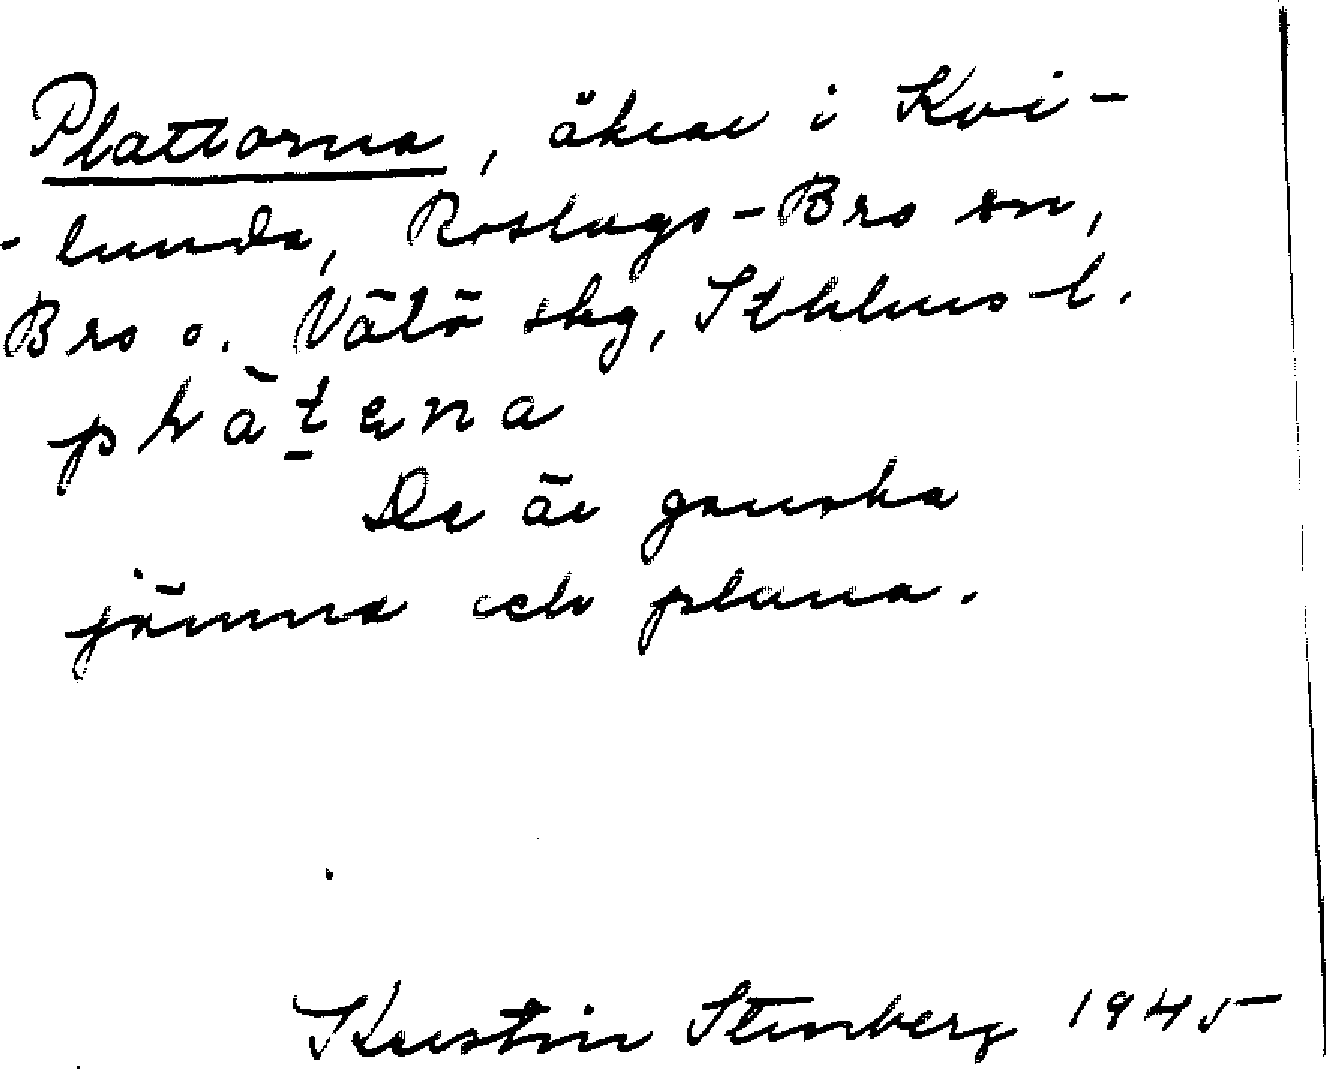 Plattorna, åkrar i Kvi-
-lunda, Roslags-Bro sn,
Bro o. Vätö skg, Sthlms l.
De är ganska
jämna och plana.
Kerstin Stenberg 1945